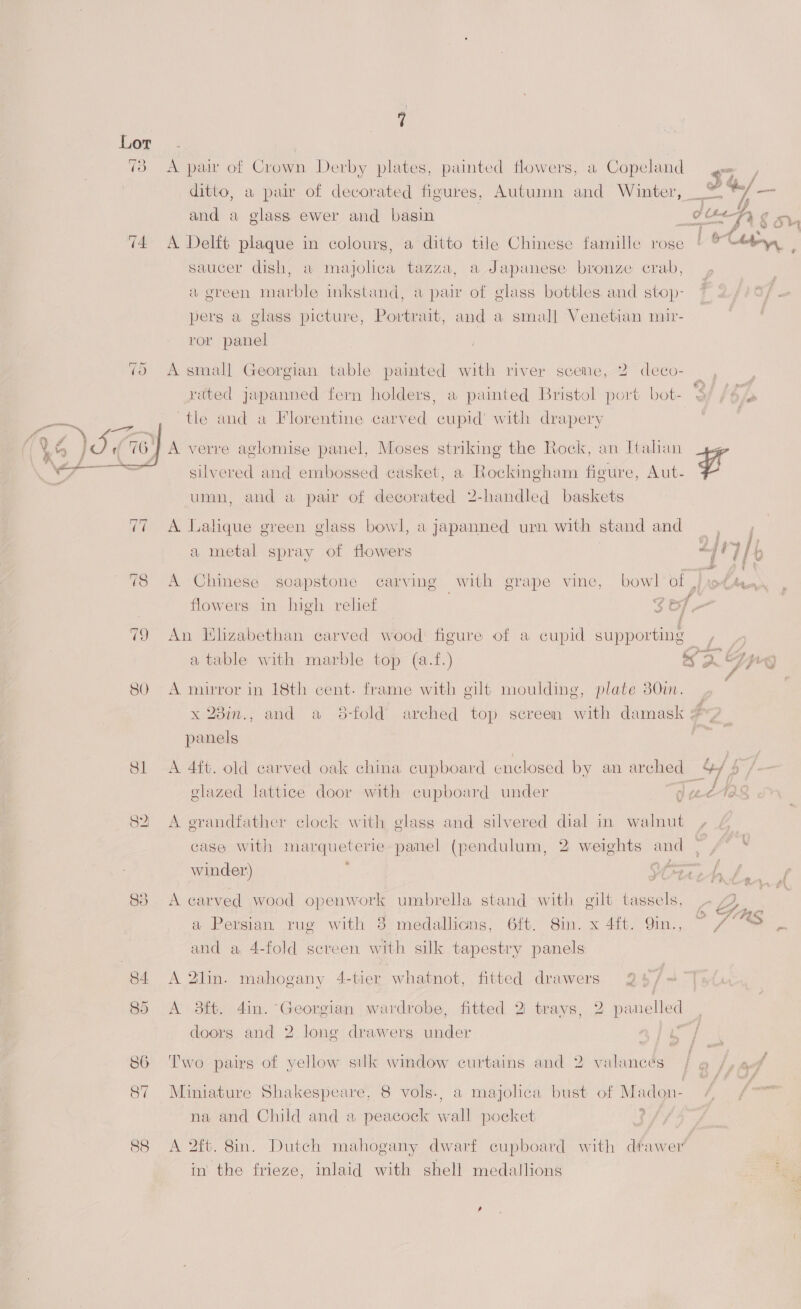 7
Lot
73 A pair of Crown Derby plates, painted flowers, a Copeland
ditto, a pair of decorated figures, Autumn and Winter,
and a glass ewer and basin
74 A Delft plaque in colours, a ditto tile Chinese famille rose
saucer dish, a majolica tazza, a Japanese bronze crab,
a green marble inkstand, a pair of glass bottles and stop-
pers a glass picture, Portrait, and a small Venetian mir-
ror panel
75 A small Georgian table painted with river scene, 2 deco-
rated japanned fern holders, a painted Bristol port bot-
tle and a Florentine carved cupid with drapery
76 A verre aglomise panel, Moses striking the Rock, an Italian
silvered and embossed casket, a Rockingham figure, Aut-
umn, and a pair of decorated 2-handled baskets
77 A Lalique green glass bowl, a japanned urn with stand and
a metal spray of flowers
78 A Chinese soapstone carving with grape vine, bowl of
flowers in high relief
79 An Elizabethan carved wood figure of a cupid supporting
a table with marble top (a.f.)
80 A mirror in 18th cent. frame with gilt moulding, plate 30in.
x 23in., and a 3-fold arched top screen with damask
panels
81 A 4ft. old carved oak china cupboard enclosed by an arched
glazed lattice door with cupboard under
82 A grandfather clock with glass and silvered dial in walnut
case with marqueterie panel (pendulum, 2 weights and
winder)
83 A carved wood openwork umbrella stand with gilt tassels,
a Persian rug with 3 medallions, 6ft. 8in. x 4ft. 9in.,
and a 4-fold screen with silk tapestry panels
84 A 21in. mahogany 4-tier whatnot, fitted drawers
85 A 3ft. 4in. Georgian wardrobe, fitted 2 trays, 2 panelled
doors and 2 long drawers under
86 Two pairs of yellow silk window curtains and 2 valances
87 Miniature Shakespeare, 8 vols., a majolica bust of Madon-
na and Child and a peacock wall pocket
88 A 2ft. 8in. Dutch mahogany dwarf cupboard with drawer
in the frieze, inlaid with shell medallions